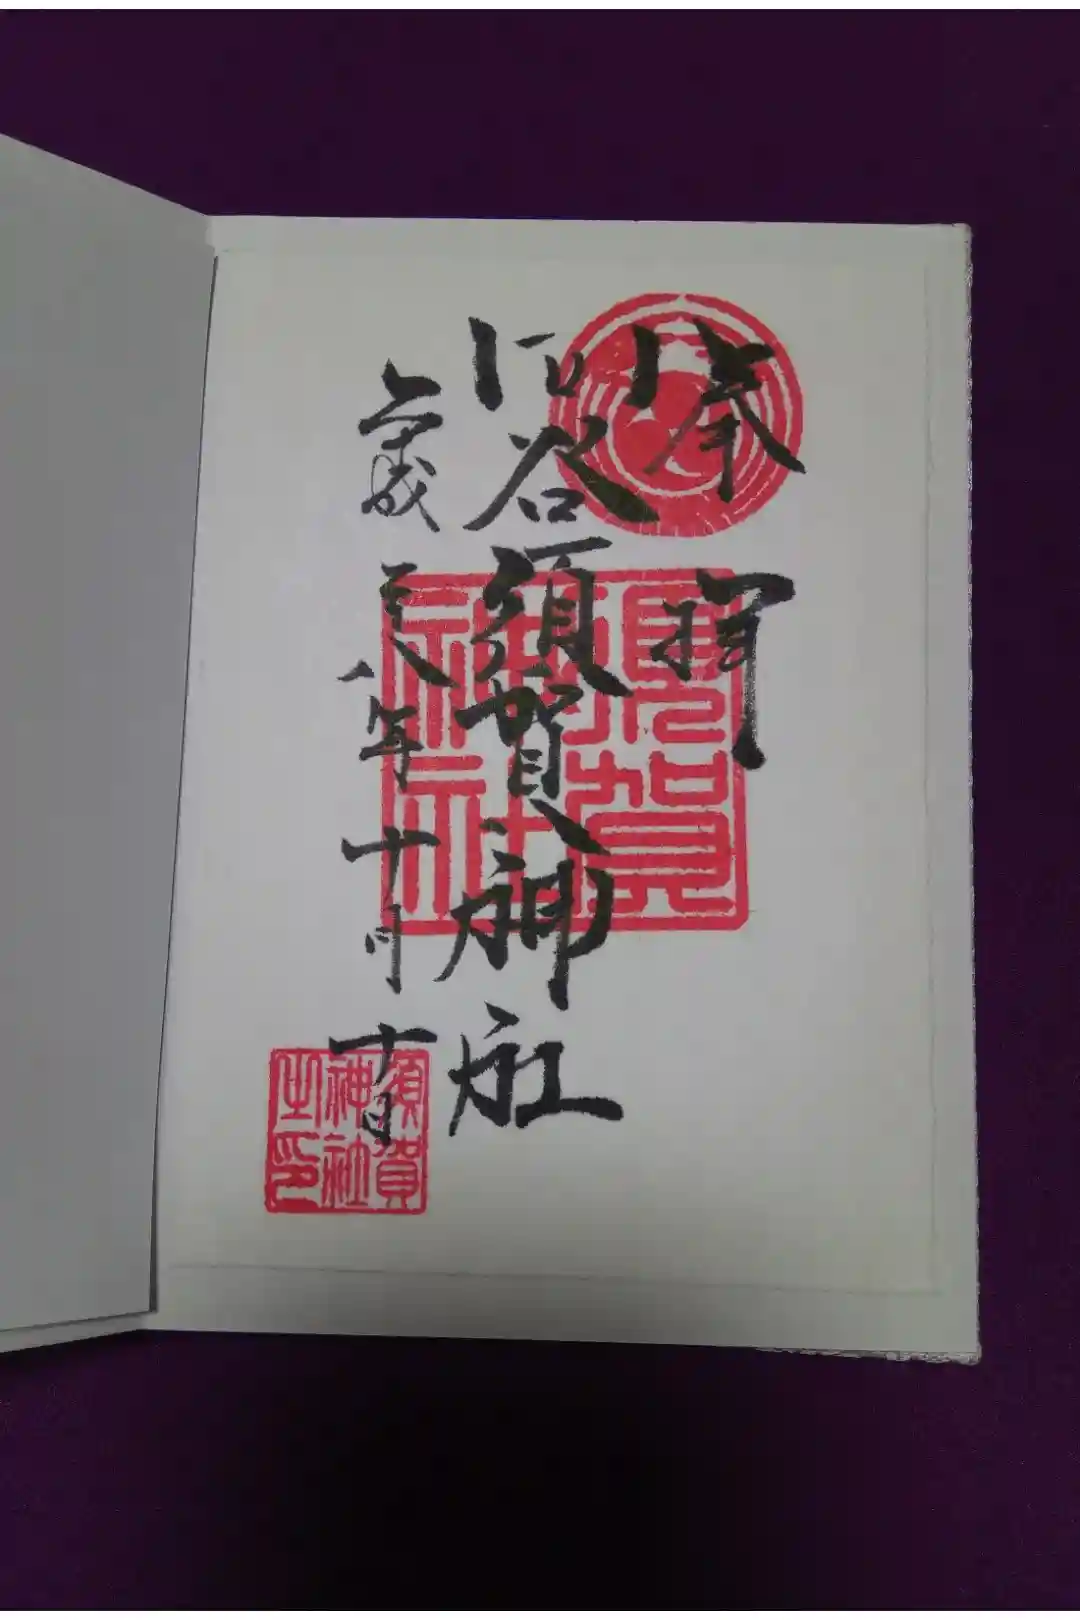 奉拝
四谷須賀神社
平成二十八年十月十日
須賀
神社
須賀
神社
之印